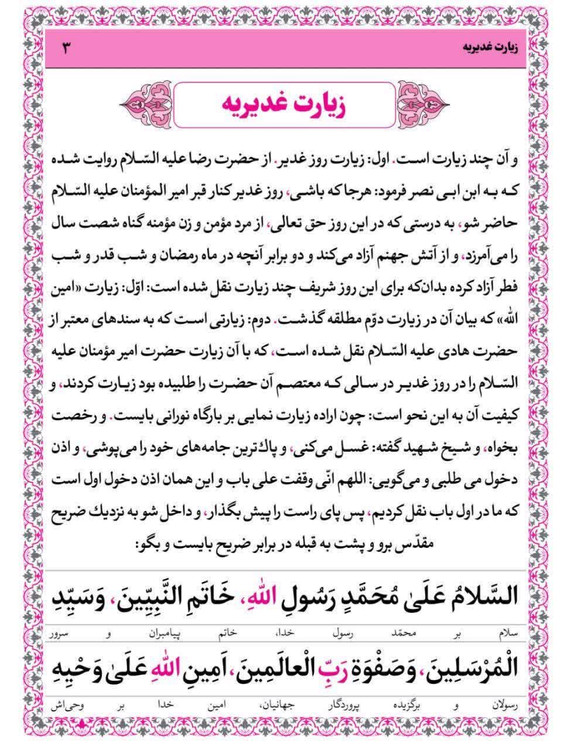 زیارت غدیریه
۳
زیارت غدیریه
و آن چند زیارت است. اول: زیارت روز غدیر. از حضرت رضا علیه السّلام روایت شده
که به ابن ابی نصر فرمود: هرجا‌که باشی، روز غدیر کنار قبر امیر المؤمنان علیه السّلام
حاضر شو، به درستی که در این روز حق تعالی، از مرد مؤمن و زن مؤمنه گناه شصت سال
را می‌آمرزد، و از آتش جهنم آزاد می‌کند و دو برابر آنچه در ماه رمضان و شب قدر و شب
فطر آزاد کرده بدان‌که برای این روز شریف چند زیارت نقل شده است: اوّل: زیارت «امین
الله» که بیان آن در زیارت دوّم مطلقه گذشت. دوم: زیارتی است که به سندهای معتبر از
حضرت هادی علیه السّلام نقل شده است، که با آن زیارت حضرت امیر مؤمنان علیه
السّلام را در روز غدیر در سالی که معتصم آن حضرت را طلبیده بود زیارت کردند، و
کیفیت آن به این نحو است: چون اراده زیارت نمایی بر بارگاه نورانی بایست. و رخصت
بخواه، و شیخ شهید گفته: غسل می‌کنی، و پاك‌ترین جامه‌های خود را می‌پوشی، و اذن
دخول می طلبی و می‌گویی: اللهم انّی وقفت علی باب و این همان اذن دخول اول است
که ما در اول باب نقل کردیم، پس پای راست را پیش بگذار، و داخل شو به نزدیك ضریح
مقدّس برو و پشت به قبله در برابر ضریح بایست و بگو:
السَّلامُ عَلَىٰ مُحَمَّدٍ رَسُولِ اللهِ، خَاتَمِ النَّبِیِّینَ، وَسَیِّدِ
سلام بر محمّد رسول خدا، خاتم پیامبران و سرور
الْمُرْسَلِینَ، وَصَفْوَةِ رَبِّ الْعالَمِینَ، اَمِینِ اللهِ عَلَىٰ وَحْیِهِ
رسولان و برگزیده پروردگار جهانیان، امین خدا بر وحی‌اش